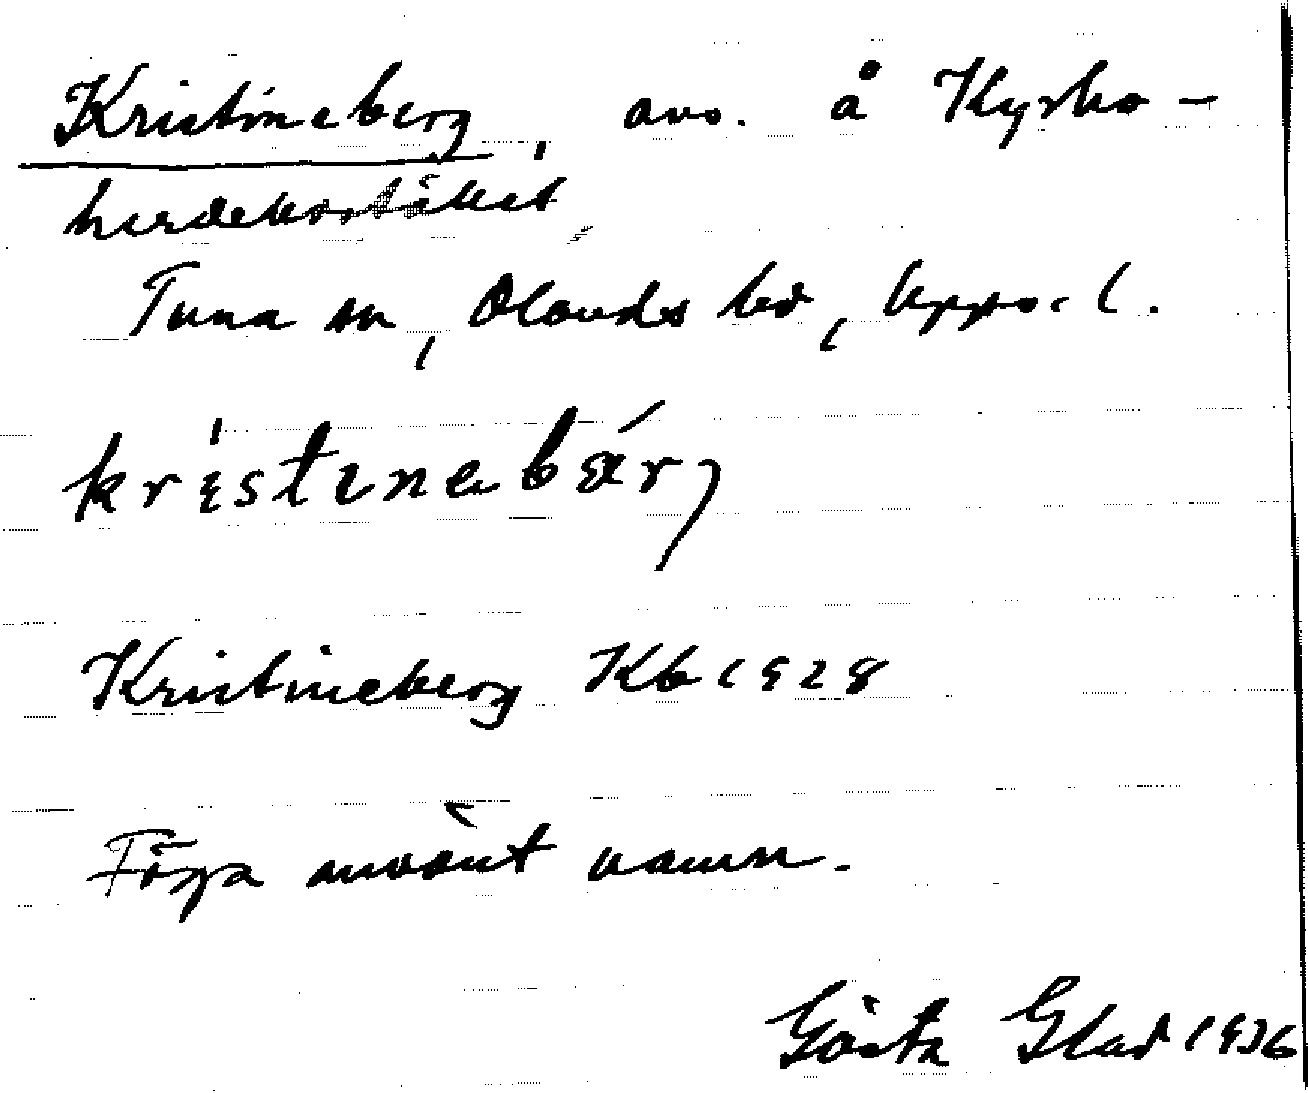 Kristineberg, avs. å Kyrko-
herdebostället,
Tuna sn, Olands hd, Upps. l.
kristinebärj
Kristineberg Kb 1928
Föga använt namn.
Gösta Glad 1936